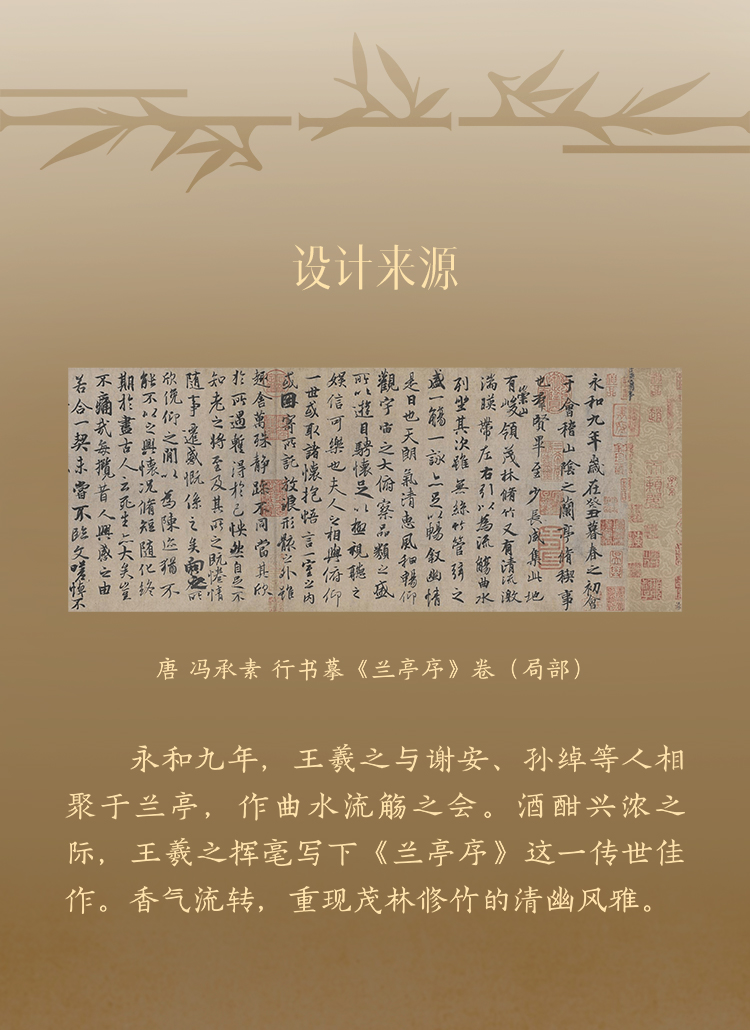 设计来源
永和九年歲在癸丑暮春之初會
于會稽山陰之蘭亭脩禊事
也群賢畢至少長咸集此地
有崇山峻領茂林脩竹又有清流激
湍暎帶左右引以為流觴曲水
列坐其次雖無絲竹管弦之
盛一觴一詠亦足以暢敘幽情
是日也天朗氣清惠風和暢仰
觀宇宙之大俯察品類之盛
所以遊目騁懷足以極視聽之
娛信可樂也夫人之相與俯仰
一世或取諸懷抱悟言一室之內
或因寄所託放浪形骸之外雖
趣舍萬殊靜躁不同當其欣
於所遇暫得於己怏然自足不
知老之將至及其所之既惓情
隨事遷感慨係之矣向之所
欣俛仰之閒以為陳迹猶不
能不以之興懷況脩短隨化終
期於盡古人云死生亦大矣豈
不痛哉每攬昔人興感之由
若合一契未嘗不臨文嗟悼不
唐 冯承素 行书摹《兰亭序》卷（局部）
永和九年，王羲之与谢安、孙绰等人相
聚于兰亭，作曲水流觞之会。酒酣兴浓之
际，王羲之挥毫写下《兰亭序》这一传世佳
作。香气流转，重现茂林修竹的清幽风雅。